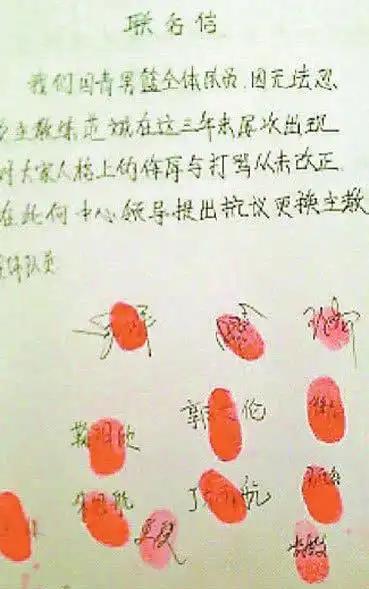 联名信
我们国青男篮全体队员,因无法忍
受主教练范斌在这三年来屡次出现
对大家人格上的侮辱与打骂从未改正
在此向中心领导提出抗议更换主教
全体队员
郭艾伦
鞠明欣
朱旭航 丁彦雨航